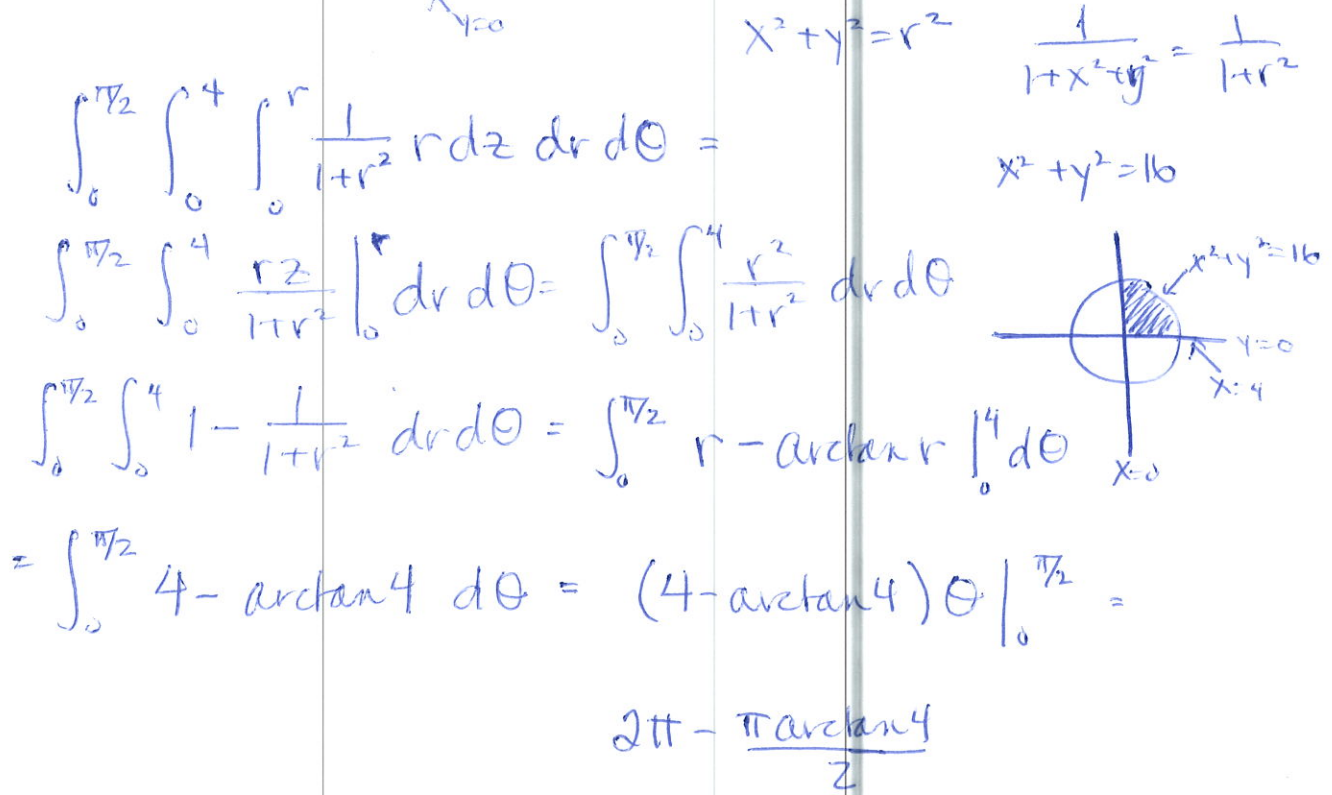 y=0
x² + y² = r²
1/(1+x²+y²) = 1/(1+r²)
∫₀^(π/2) ∫₀^4 ∫₀^r 1/(1+r²) r dz dr dθ =
x² + y² = 16
∫₀^(π/2) ∫₀^4 rz/(1+r²) |₀^r dr dθ = ∫₀^(π/2) ∫₀^4 r²/(1+r²) dr dθ
x²+y²=16
y=0
x=4
x=0
∫₀^(π/2) ∫₀^4 1 - 1/(1+r²) dr dθ = ∫₀^(π/2) r - arctan r |₀^4 dθ
= ∫₀^(π/2) 4 - arctan 4 dθ = (4 - arctan 4) θ |₀^(π/2) =
2π - π arctan 4/2